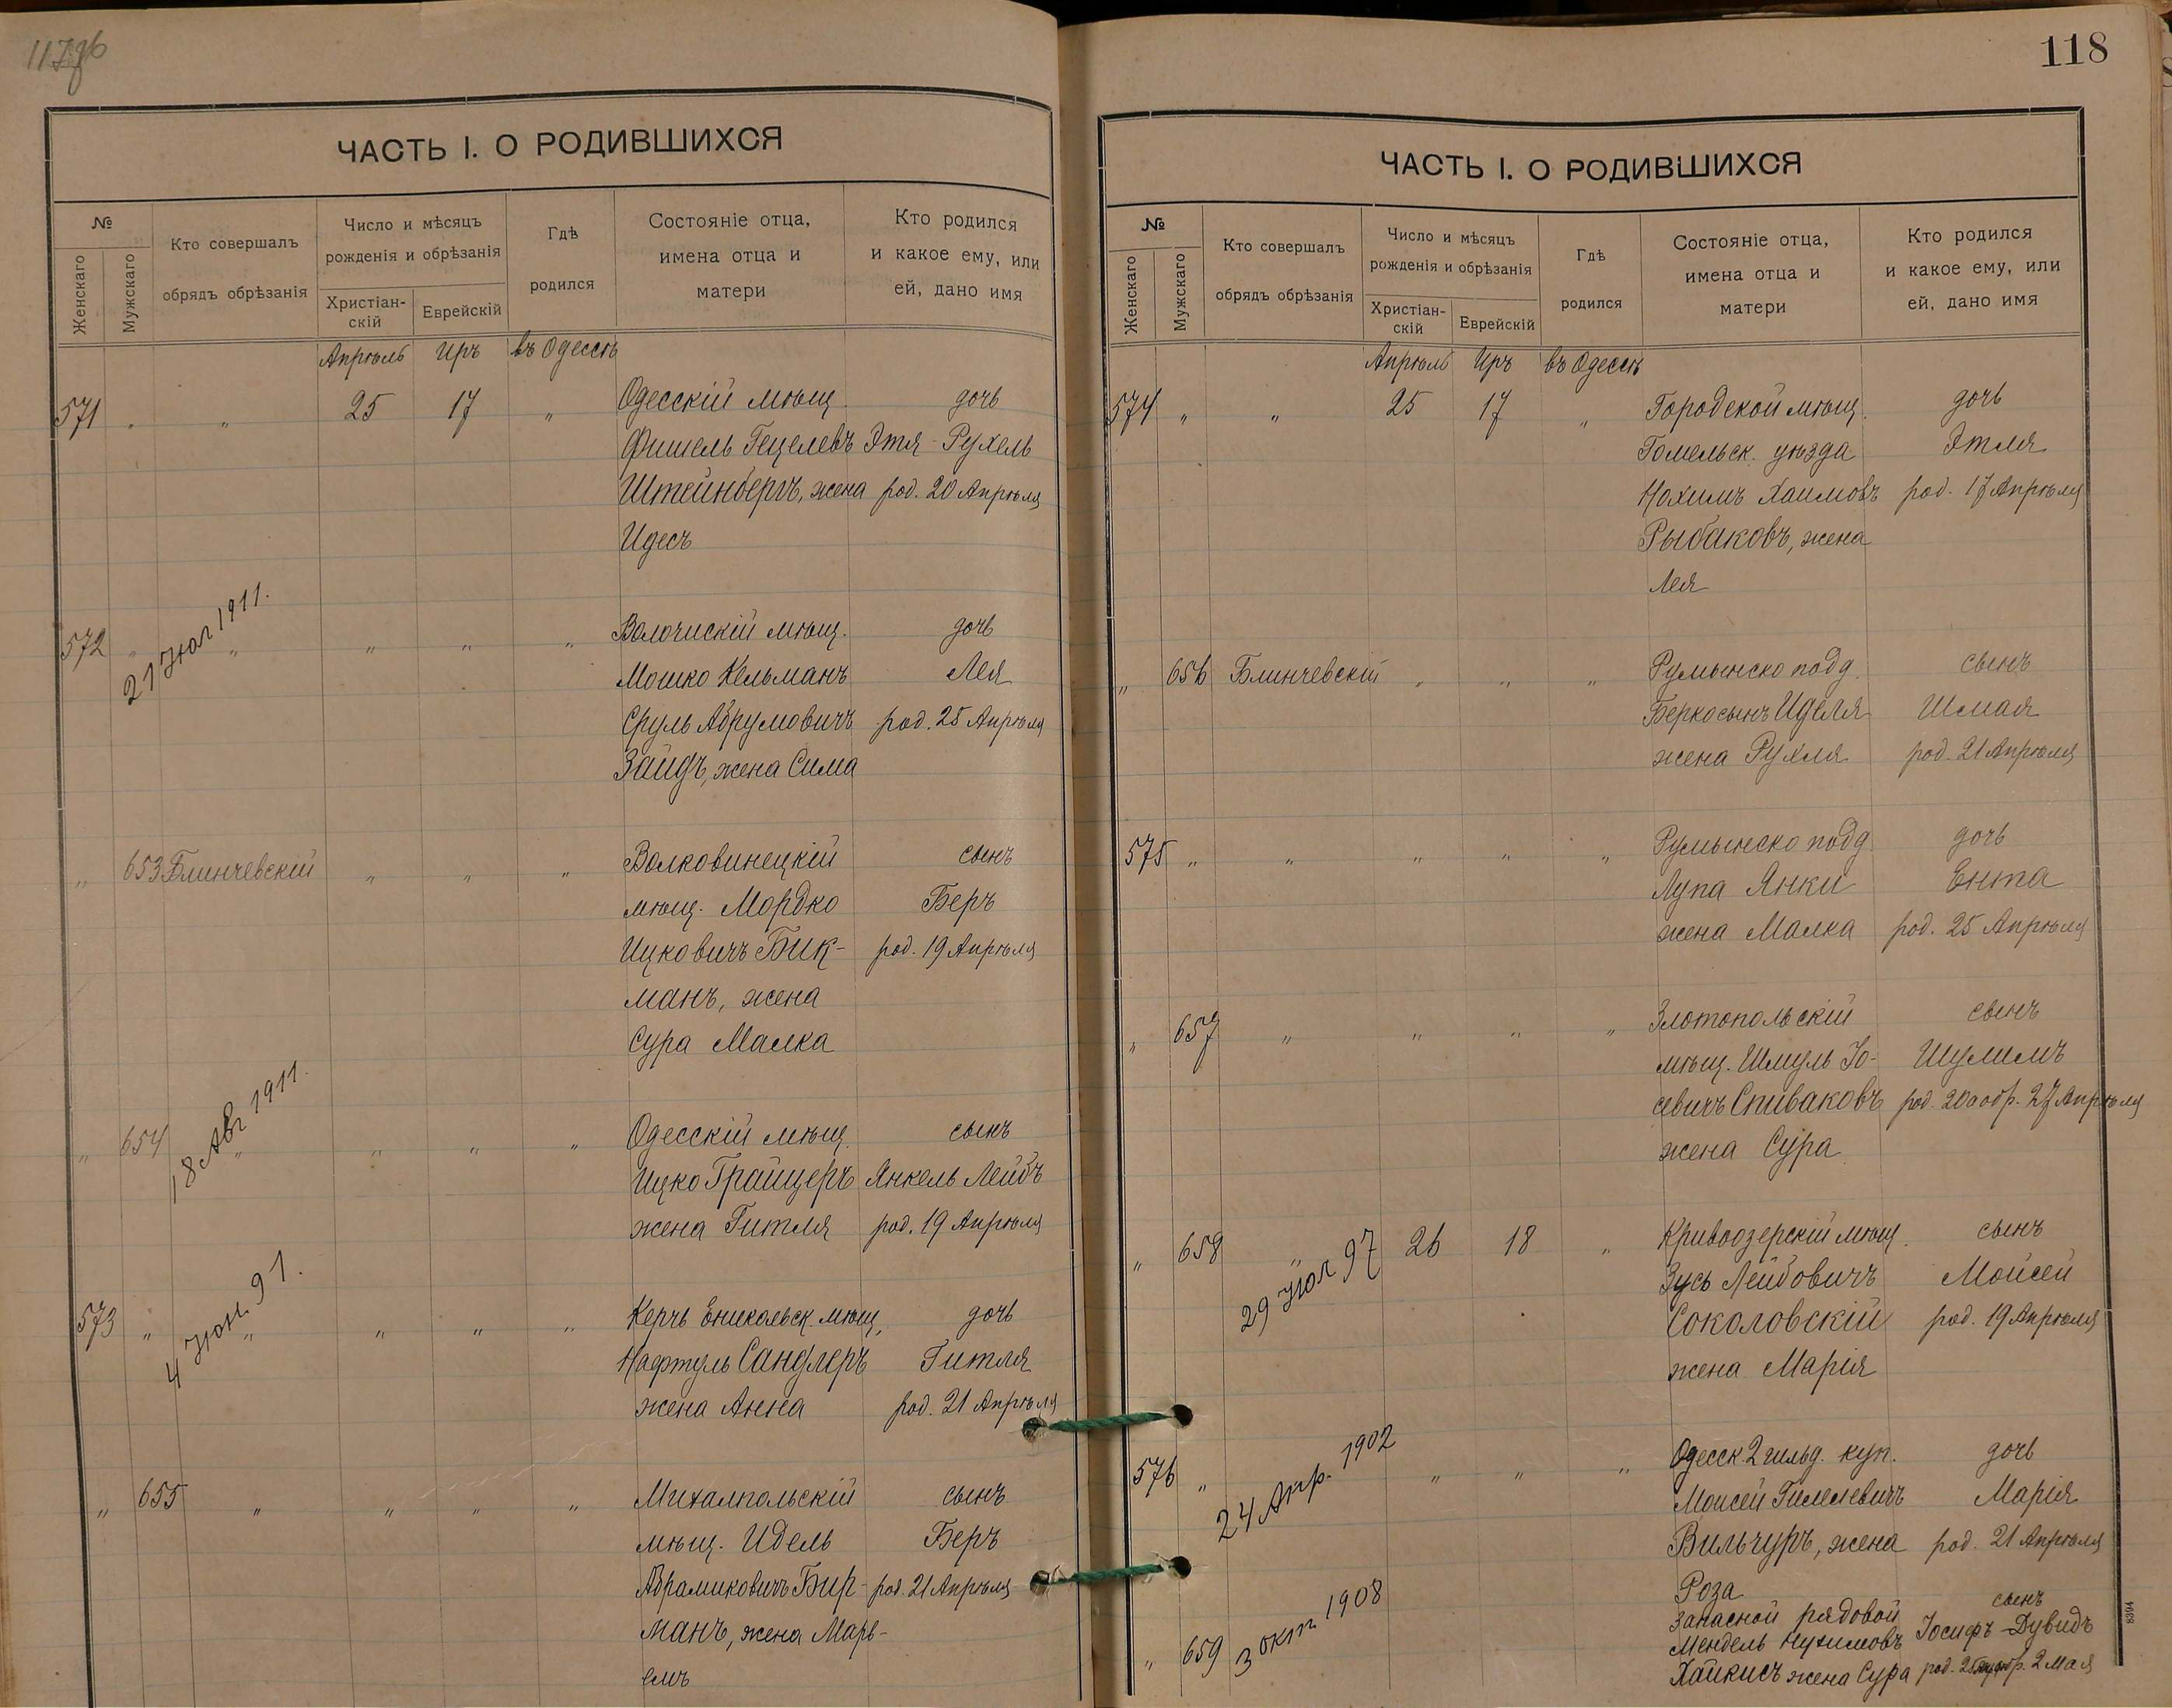 118
ЧАСТЬ I. О РОДИВШИХСЯ
№
Женскаго
Мужскаго
Кто совершалъ
обрядъ обрѣзанія
Число и мѣсяцъ
рожденія и обрѣзанія
Христіан-
скій
Еврейскій
Гдѣ
родился
Состояніе отца,
имена отца и
матери
Кто родился
и какое ему, или
ей, дано имя
Апрѣль Иръ въ Одессѣ
571 " " 25 17 " Одесскій мѣщ. дочь
Фишель Гецелевъ Этя-Рухель
Штейнбергъ, жена род. 20 Апрѣля
Идесъ
21 Юол 1911.
572 " " " " " Волочискій мѣщ. дочь
Мошко Кельманъ Лея
Сруль Абрумовичъ род. 25 Апрѣля
Зайдъ, жена Сима
" 653 Блинчевскій " " " Волковинецкій сынъ
мѣщ. Мордко Беръ
Ицковичъ Бик- род. 19 Апрѣля
манъ, жена
Сура Малка
18 Авг 1911.
" 654 " " " " Одесскій мѣщ. сынъ
Ицко Грайцеръ Янкель Лейбъ
жена Гитля род. 19 Апрѣля
4 Юон. 91.
573 " " " " " Керчь Еникольск. мѣщ. дочь
Нафтуль Сандлеръ Гитля
жена Анна род. 21 Апрѣля
" 655 " " " " Михалпольскій сынъ
мѣщ. Идель Беръ
Абрамиковичъ Бир- род. 21 Апрѣля
манъ, жена Марь-
емъ
ЧАСТЬ I. О РОДИВШИХСЯ
№
Женскаго
Мужскаго
Кто совершалъ
обрядъ обрѣзанія
Число и мѣсяцъ
рожденія и обрѣзанія
Христіан-
скій
Еврейскій
Гдѣ
родился
Состояніе отца,
имена отца и
матери
Кто родился
и какое ему, или
ей, дано имя
Апрѣль Иръ въ Одессѣ
574 " " 25 17 " Городской мѣщ. дочь
Гомельск. уѣзда Этля
Нохимъ Хаимовъ род. 17 Апрѣля
Рыбаковъ, жена
Лея
" 656 Блинчевскій " " " Румынско подд. сынъ
Берко сынъ Иделя Шмая
жена Рухля род. 21 Апрѣля
575 " " " " " Румынско подд. дочь
Лупа Янки Ента
жена Малка род. 25 Апрѣля
" 657 " " " " Злотопольскій сынъ
мѣщ. Шмуль Іо- Шулимъ
севичъ Спиваковъ род. 20 а обр. 27 Апрѣля
жена Сура
" 658 " 26 18 " Кривоозерскій мѣщ. сынъ
29 Юол 97
Зусь Лейбовичъ Мойсей
Соколовскій род. 19 Апрѣля
жена Марія
576 " 24 Апр. 1902 " " " Одесск. 2 гильд. куп. дочь
Моисей Гилелевичъ Марія
Вильчуръ, жена род. 21 Апрѣля
Роза
Запасной рядовой сынъ
" 659 3 окт 1908 Мендель Нухимовъ Іосифъ-Дувидъ
Хайкисъ жена Сура род. обр. 2 Мая
8394